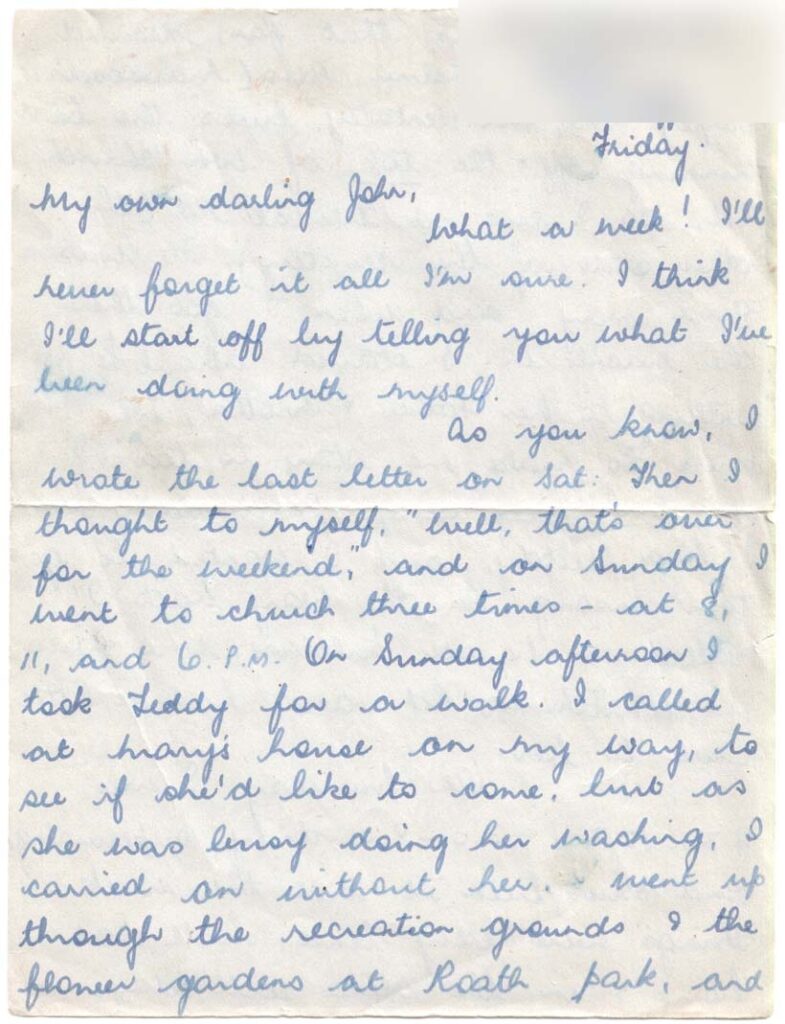 Friday.
My own darling John,
What a week! I'll
never forget it all I'm sure. I think
I'll start off by telling you what I've
been doing with myself.
As you know, I
wrote the last letter on Sat: Then I
thought to myself, "Well, that's over
for the weekend", and on Sunday I
went to church three times - at 8,
11, and 6. P.M. On Sunday afternoon I
took Teddy for a walk. I called
at Mary's house on my way, to
see if she'd like to come, but as
she was busy doing her washing, I
carried on without her. I went up
through the recreation grounds & the
flower gardens at Roath Park, and